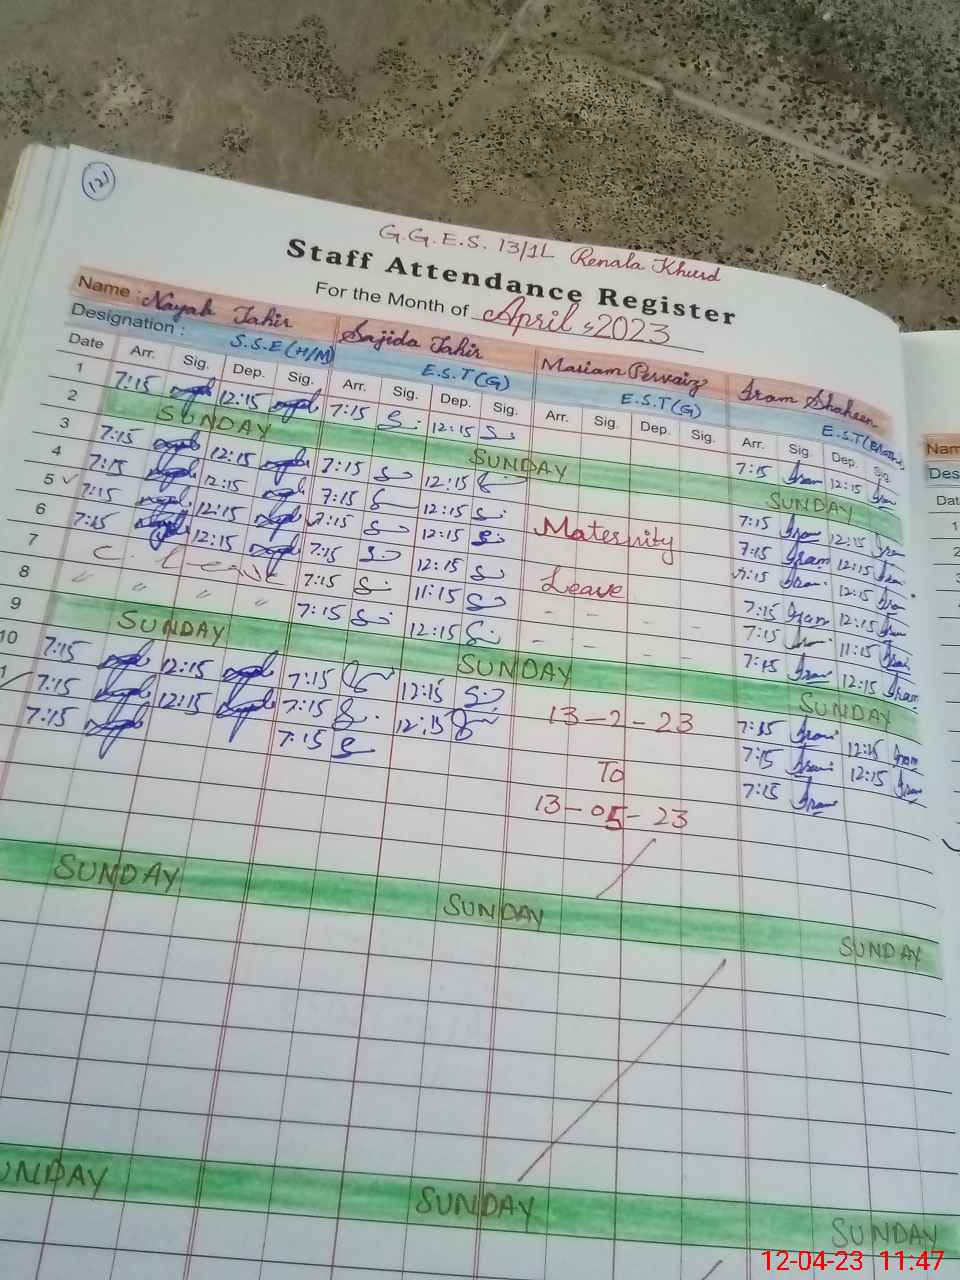 121
G.G.E.S. 13/1L Renala Khurd
Staff Attendance Register
For the Month of April, 2023
Name : Nayab Tahir Sajida Tahir Mariam Pervaiz Iram Shaheen
Designation : S.S.E (H/M) E.S.T (G) E.S.T (G) E.S.T
Date Arr. Sig. Dep. Sig. Arr. Sig. Dep. Sig. Arr. Sig. Dep. Sig. Arr. Sig. Dep. Sig.
1 7:15 12:15 7:15 12:15 7:15 Iram 12:15 Iram
2 SUNDAY SUNDAY SUNDAY
3 7:15 12:15 7:15 12:15 7:15 Iram 12:15 Iram
4 7:15 12:15 7:15 12:15 Maternity 7:15 Iram 12:15 Iram
5 ✓ 7:15 12:15 7:15 12:15 7:15 Iram 12:15 Iram
6 7:15 12:15 7:15 12:15 Leave 7:15 Iram 12:15 Iram
7 C. Leave 7:15 11:15 7:15 11:15 Iram
8 " " " " 7:15 12:15 - - - - 7:15 Iram 12:15 Iram
9 SUNDAY SUNDAY SUNDAY
10 7:15 12:15 7:15 12:15 13-2-23 7:15 Iram 12:15 Iram
1 7:15 12:15 7:15 12:15 To 7:15 Iram 12:15 Iram
7:15 7:15 13-05-23 7:15 Iram
SUNDAY SUNDAY SUNDAY
UNDAY SUNDAY SUNDAY
Nam
Des
Dat
1
2
3
12-04-23 11:47